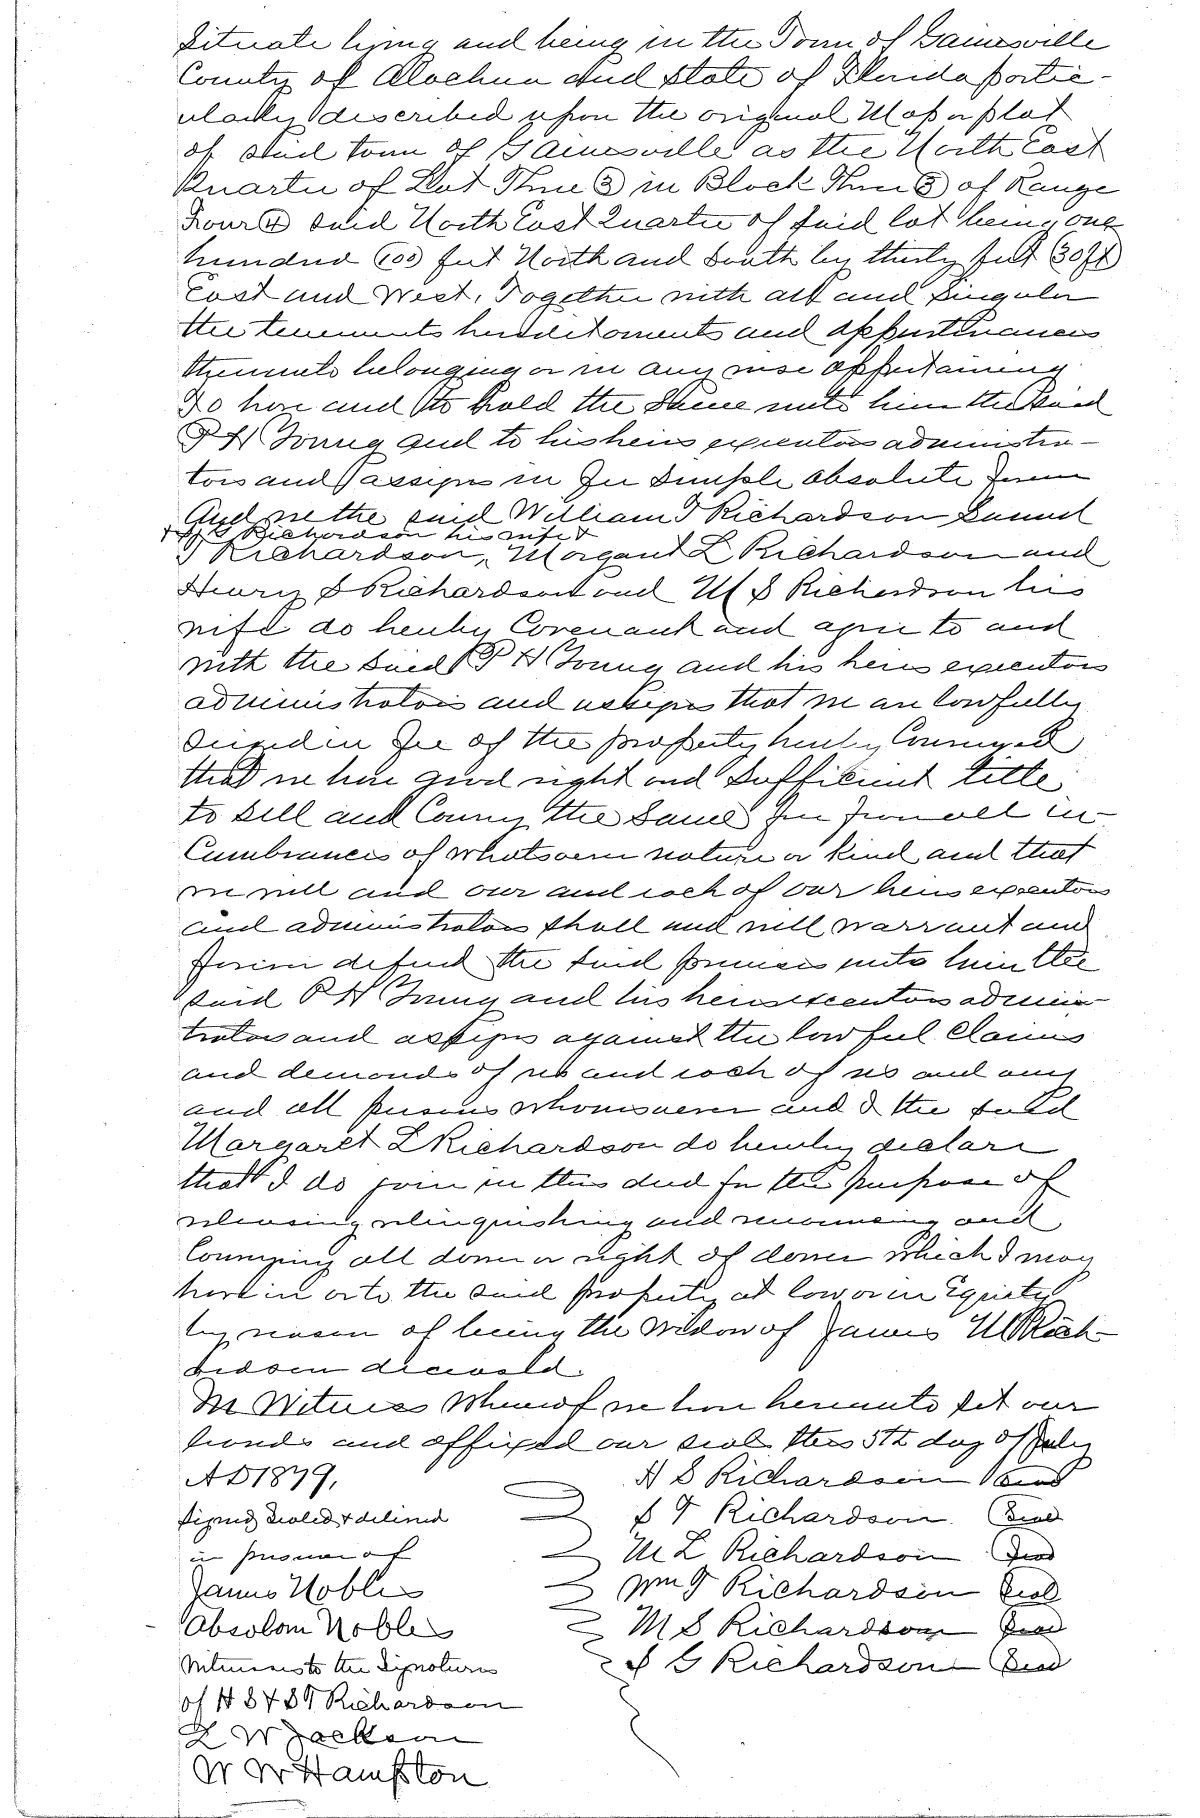 Situate lying and being in the Town of Gainesville
County of Alachua and State of Florida partic-
ularly described upon the original Map or plat
of said town of Gainesville as the North East
Quarter of Lot Three (3) in Block Three (3) of Range
Four (4) said North East Quarter of said lot being one
hundred (100) feet North and South by thirty feet (30ft)
East and West, Together with all and Singular
the tenements hereditaments and appurtenances
thereunto belonging or in any wise appertaining
To have and to hold the Same unto him the said
P H Young and to his heirs executors administra-
tors and assigns in Fee Simple absolute forever
And we the said William T Richardson Samuel
+ S G Richardson his wife +
T Richardson, Margaret L Richardson and
Henry S Richardson and M S Richardson his
wife do hereby Covenant and agree to and
with the said P H Young and his heirs executors
administrators and assigns that we are lawfully
seized in Fee of the property hereby Conveyed
that we have good right and Sufficient title
to sell and Convey the Same free from all in-
Cumbrances of whatsoever nature or kind and that
we will and our and each of our heirs executors
and administrators shall and will warrant and
forever defend the said premises unto him the
said P H Young and his heirs executors adminis-
trators and assigns against the lawful Claims
and demands of us and each of us and any
and all persons whomsoever and I the said
Margaret L Richardson do hereby declare
that I do join in this deed for the purpose of
releasing relinquishing and renouncing and
Conveying all dower or right of dower which I may
have in or to the said property at law or in Equity
by reason of being the Widow of James M Rich-
ardson deceased.
In Witness Whereof we have hereunto set our
hands and affixed our seals this 5th day of July
AD 1879. H S Richardson Seal
Signed Sealed + delivered S T Richardson. Seal
in presence of M L Richardson Seal
James Nobles Wm T Richardson Seal
Absolom Nobles M S Richardson Seal
Witnesses to the Signatures S G Richardson Seal
of H S + S T Richardson
L W Jackson
W W Hampton